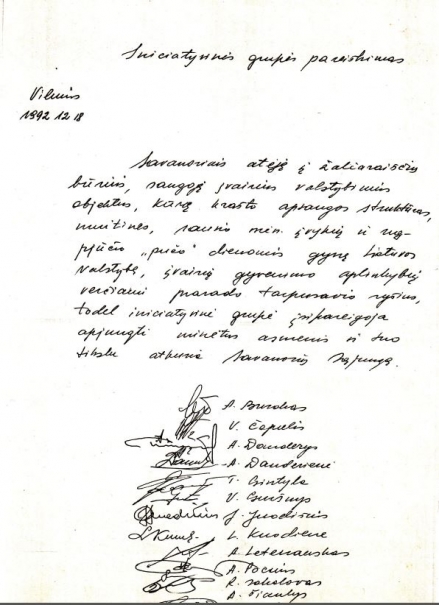 Iniciatyvinės grupės pareiškimas
Vilnius
1992 12 18
Savanoriais atėję į žaliaraiščių
būrius, saugoję įvairius valstybinius
objektus, karę krašto apsaugos struktūras,
muitines, sausio mėn. įvykių ir rug-
pjūčio „pučo" dienomis gynę Lietuvos
valstybę, įvairių gyvenimo aplinkybių
verčiami prarado tarpusavio ryšius,
todėl iniciatyvinė grupė įsipareigoja
apjungti minėtus asmenis ir tuo
tikslu atkuria Savanorių Sąjungą.
A. Burokas
V. Čapulis
A. Danderys
A. Danderienė
T. Gintyla
V.
J. Juodišius
L. Kuodienė
A.
A. Pocius
R. Sokolovas
A.